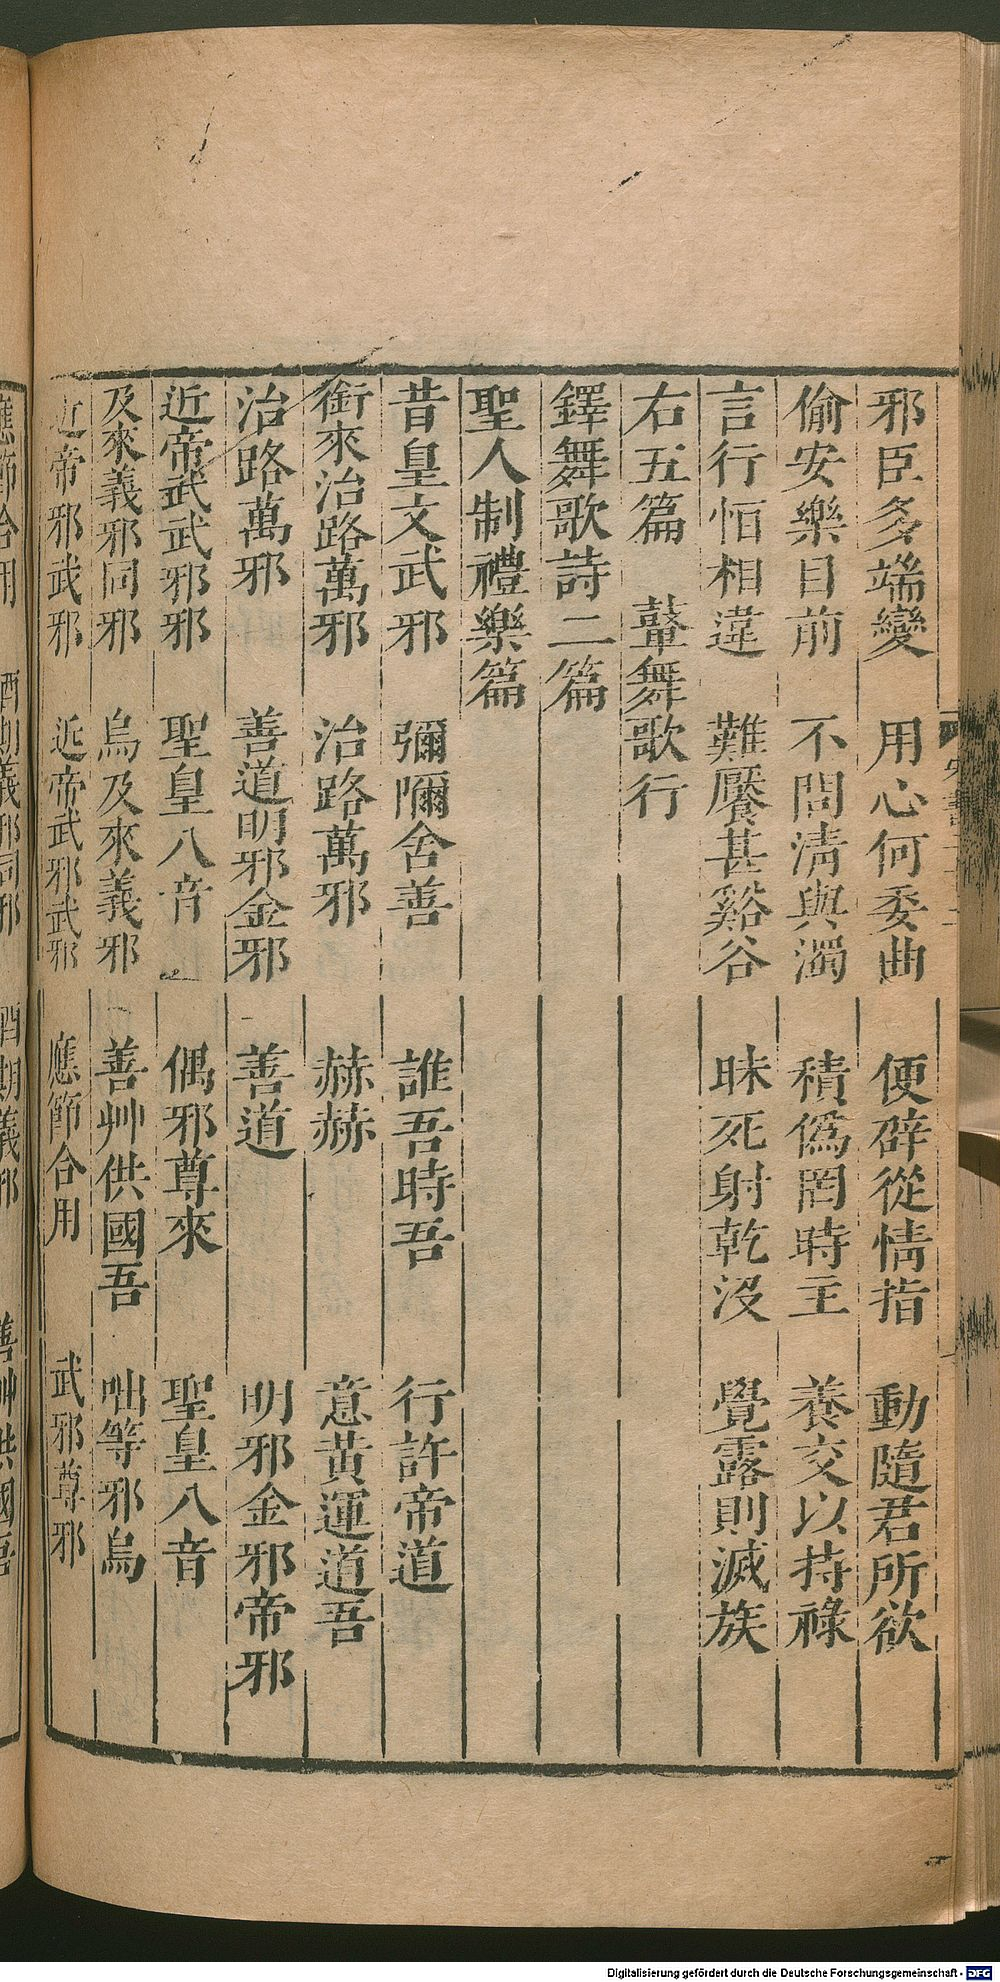 邪臣多端變　用心何委曲　便辟從情指　動隨君所欲
偷安樂目前　不問清與濁　積僞罔時主　養交以持祿
言行恒相違　難饜甚谿谷　昧死射乾沒　覺露則滅族
右五篇　鼙舞歌行
鐸舞歌詩二篇
聖人制禮樂篇
昔皇文武邪　彌彌舍善　誰吾時吾　行許帝道
銜來治路萬邪　治路萬邪　赫赫　意黃運道吾
治路萬邪　善道明邪金邪　善道　明邪金邪帝邪
近帝武武邪邪　聖皇八音　偶邪尊來　聖皇八音
及來義邪同邪　烏及來義邪　善艸供國吾　咄等邪烏
近帝邪武邪　近帝武邪武邪　應節合用　武邪尊邪
應節合用　酒期義邪同邪　酒期義邪　善艸供國吾
Digitalisierung gefördert durch die Deutsche Forschungsgemeinschaft - DFG